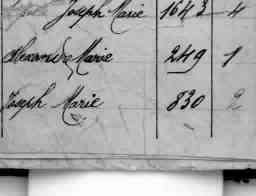 Joseph Marie 1643 4
Alexandre Marie 249 1
Joseph Marie 830 2